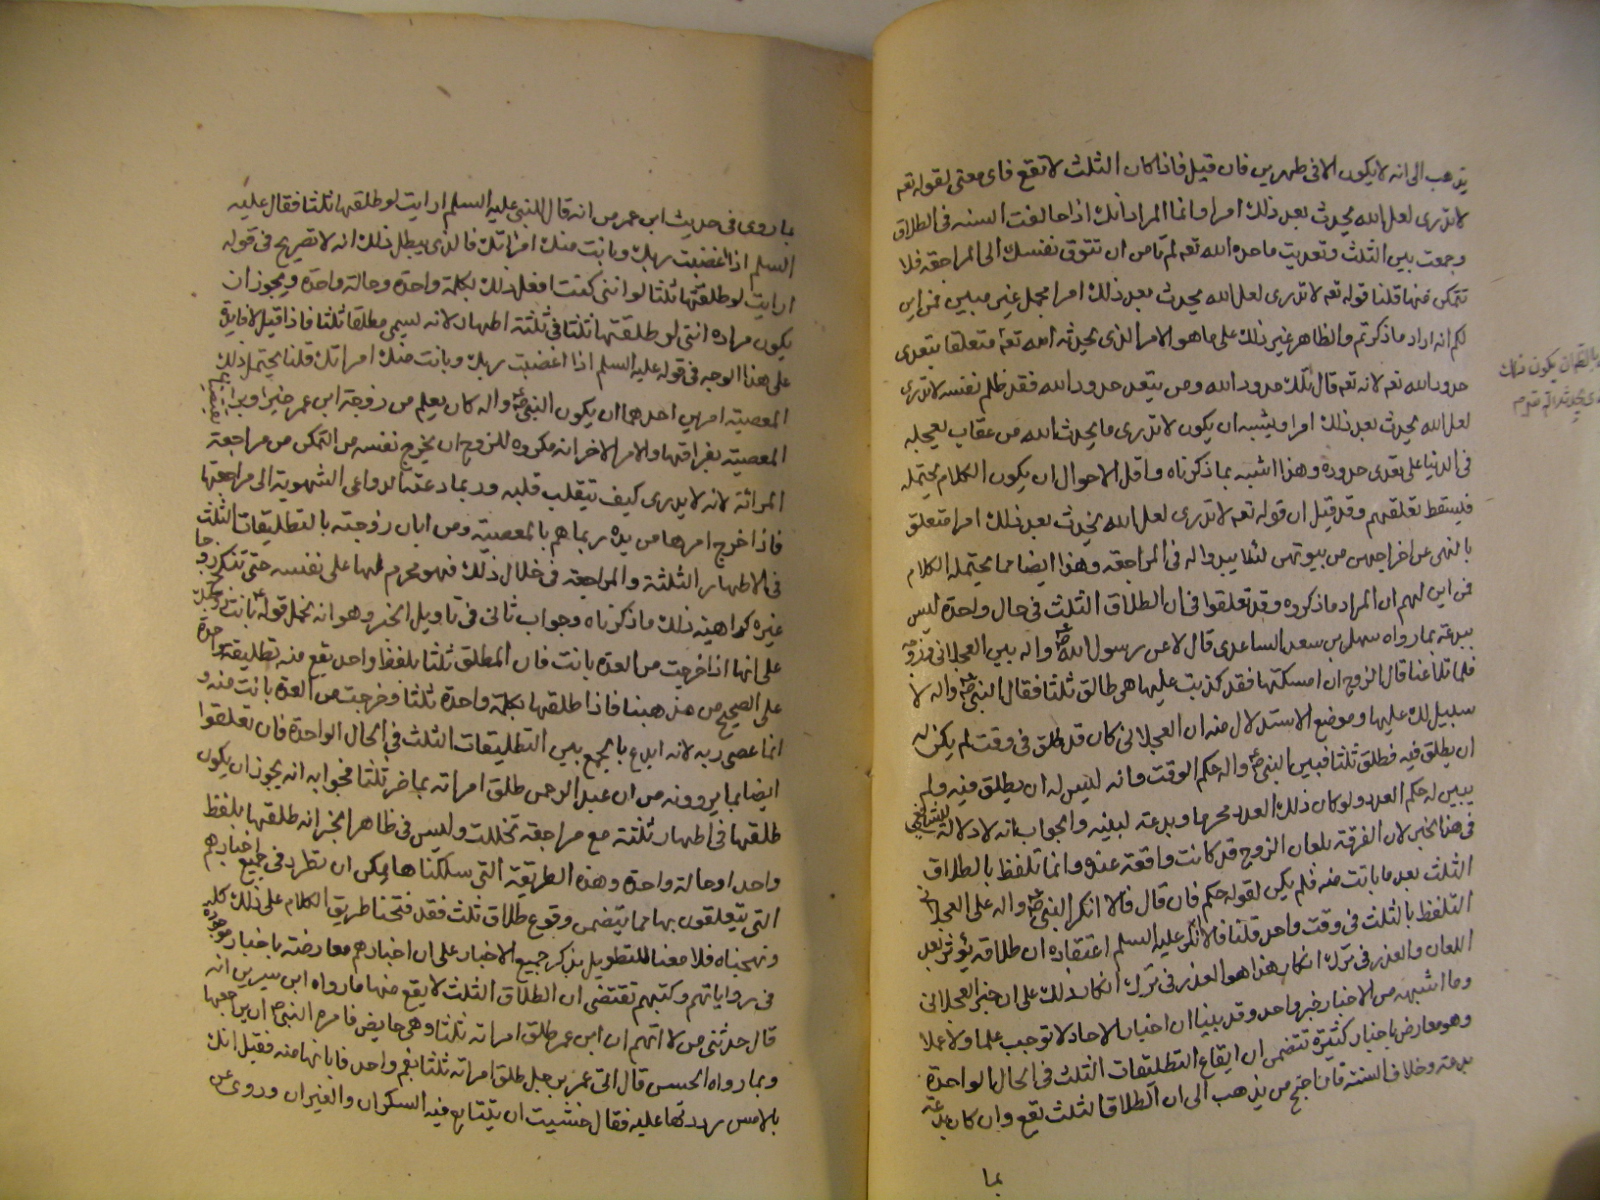 يذهب الى انه لا يكون الا فى طهرين فان قيل فاذا كان الثلث لا تقع فاى معنى لقوله تعه
لا تدرى لعل الله يحدث بعد ذلك امرا وانما المراد انك اذا خالفت السنه فى الطلاق
وجمعت بين الثلث وتعديت ما حده الله تعه لم تامن ان تتوق نفسك الى المراجعة فلا
تتمكن منها قلنا قوله تعه لا تدرى لعل الله يحدث بعد ذلك امرا مجمل غير مبين فمن اين
لكم انه اراد ما ذكرتم والظاهر غير ذلك على ما هو الامر الذى يحدثه الله تعه متعلقا بتعدى
حدود الله تعه لانه تعه قال تلك حدود الله ومن يتعد حدود الله فقد ظلم نفسه لا تدرى
لعل الله يحدث بعد ذلك امرا ويشبه ان يكون لا تدرى ما يحدث الله من عقاب يعجله
فى الدنيا على تعدى حدوده وهذا اشبه بما ذكرناه واقل الاحوال ان يكون الكلام يحتمله
فليسقط تعلقهم وقد قيل ان قوله تعه لا تدرى لعل الله يحدث بعد ذلك امرا متعلق
بالنهى عن اخراجهن من بيوتهن لئلا يبدو اله فى المراجعة وهذا ايضا مما يحتمله الكلام
فمن اين لهم ان المراد ما ذكروه وقد تعلقوا فى ان الطلاق الثلث فى حال واحدة ليس
ببدعة بما رواه سهل بن سعد الساعدى قال لاعن رسول الله ص واله بين العجلانى وزوجته
فلما تلاعنا قال الزوج ان امسكتها فقد كذبت عليها هى طالق ثلثا فقال النبى ص واله لا
سبيل لك عليها وموضع الاستدلال منه ان العجلانى كان قد طلق فى وقت لم يكن له
ان يطلق فيه فطلق ثلثا فبين النبى ص واله حكم الوقت وانه ليس له ان يطلق فيه ولم
يبين له حكم العدد ولو كان ذلك العدد محرما وبدعة لبينه والجواب انه لا دلالة للشافعى
فى هذا الخبر لان الفرقة بلعان الزوج قد كانت واقعة عنده وانما تلفظ بالطلاق
الثلث بعد ما بانت منه فلم يكن لقوله حكم فان قال فالا انكر النبى ص واله على العجلانى
التلفظ بالثلث فى وقت واحد قلنا فالا انكر عليه السلم اعتقاده ان طلاقه يؤثر بعد
اللعان والعذر فى ترك انكار هذا هو العذر فى ترك انكار ذلك على ان خبر العجلانى
وما اشبهه من الاخبار خبر واحد وقد بينا ان اخبار الاحاد لا توجب علما ولا عملا
وهو معارض باخبار كثيرة تتضمن ان ايقاع التطليقات الثلث فى الحال الواحدة
بدعة وخلاف السنة فان احتج من يذهب الى ان الطلاق الثلث تقع وان كان بدعة
بما
بما روى فى حديث ابن عمر من انه قال للنبى عليه السلم ارايت لو طلقها ثلثا فقال عليه
السلم اذا اغضبت ربك وبانت منك امراتك فالذى يبطل ذلك انه لا تصريح فى قوله
ارايت لو طلقتها ثلثا لو اننى كنت افعل ذلك بكلمة واحدة وحالة واحدة ويجوز ان
يكون مراده اننى لو طلقتها ثلثا فى ثلثة اطهار لانه يسمى مطلقا ثلثا فاذا قيل لا فايدة
على هذا الوجه فى قوله عليه السلم اذا اغضبت ربك وبانت منك امراتك قلنا يحتمل ذلك
المعصية امرين احدهما ان يكون النبى ص واله كان يعلم من زوجة ابن عمر خيرا وبرا
المعصية بفراقها والامر الاخر انه مكروه للزوج ان يخرج نفسه من التمكن من مراجعة
المراة لانه لا يدرى كيف يتقلب قلبه وربما دعته الدواعى الشهوية الى مراجعتها
فاذا اخرج امرها من يده ربما هم بالمعصية ومن ابان زوجته بالتطليقات الثلث
فى الاطهار الثلثة والمراجعة فى خلال ذلك فهو محرم لها على نفسه حتى تنكح زوجا
غيره كراهية ذلك ما ذكرناه وجواب ثانى فى تاويل الخبر وهو انه نحمل قوله بانت
على انها اذا خرجت من العدة بانت فان المطلق ثلثا بلفظ واحد يقع منه تطليقة واحدة
على الصحيح من مذهبنا فاذا طلقها بكلمة واحدة ثلثا وخرجت من العدة بانت منه و
انما عصى ربه لانه ابدع بالجمع بين التطليقات الثلث فى الحال الواحدة فان تعلقوا
ايضا بما يروونه من ان عبد الرحمن طلق امراته بماضر ثلثا فجوابه انه يجوز ان يكون
طلقها فى اطهار ثلثة مع مراجعة تخللت وليس فى ظاهر الخبر انه طلقها بلفظ
واحد او حالة واحدة وهذه الطريقة التى سلكناها يمكن ان تطرد فى جميع اخبارهم
التى يتعلقون بها مما يتضمن وقوع طلاق ثلث فقد فتحنا طريق الكلام على ذلك كله
ونهجناه فلا معنا للتطويل بذكر جميع الاخبار على ان اخبارهم معارضة باخبار موجودة
فى رواياتهم وكتبهم تقتضى ان الطلاق الثلث لا يقع منها ما رواه ابن سيرين انه
قال حدثنى من لا اتهم ان ابن عمر طلق امراته ثلثا وهى حايض فامره النبى ص ان يراجعها
وبما رواه الحسن قال اتى عمر برجل طلق امراته ثلثا بفم واحد فابانها منه فقيل انك
بالامس رددتها عليه فقال خشيت ان يتتابع فيه السكران والغيران وروى عن